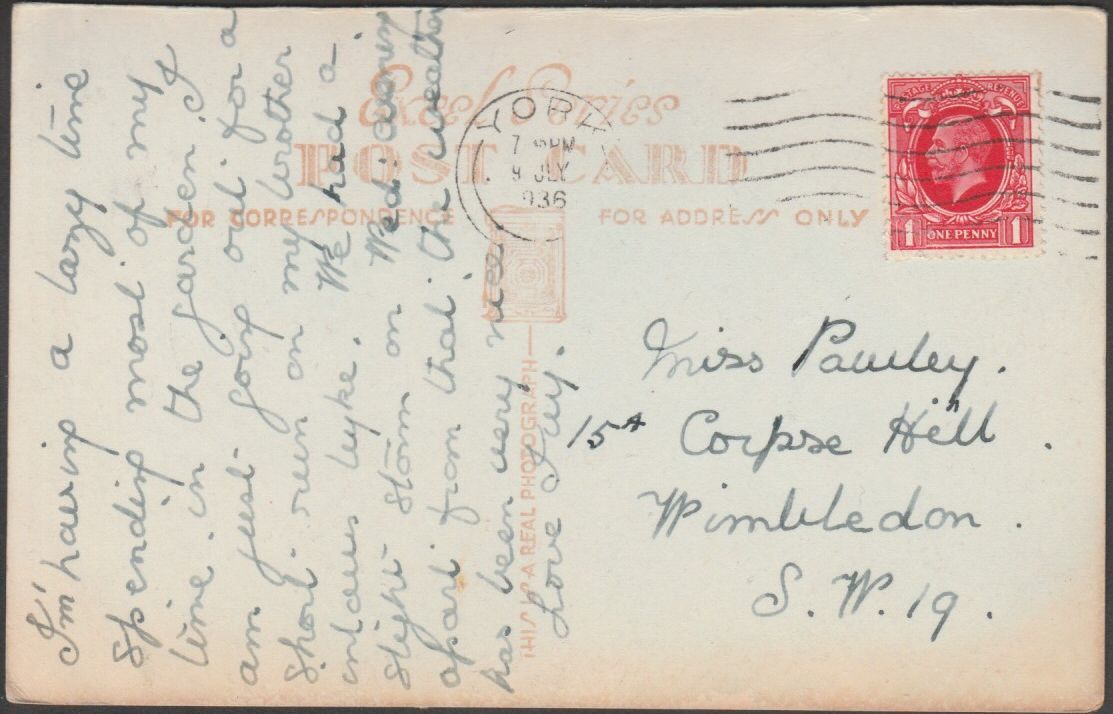 Excel Series
POST CARD
FOR CORRESPONDENCE
FOR ADDRESS ONLY
THIS IS A REAL PHOTOGRAPH
YORK
7 PM
9 JLY
1936
POSTAGE REVENUE
1 ONE PENNY 1
I'm having a lazy time
spending most of my
time in the garden. I
am just going out for a
short run on my brother
in laws byke. We had a
slight storm on Wed: evening
apart from that the weather
has been very nice.
Love
Miss Pawley.
15A Corpse Hill.
Wimbledon.
S.W.19.